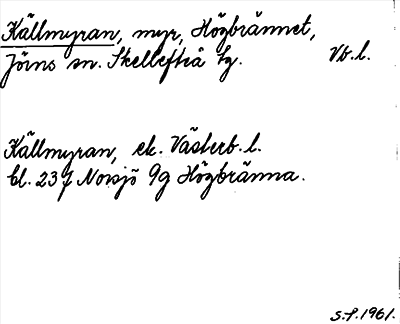 Källmyran, myr, Högbrännet,
Jörns sn. Skellefteå tg. Vb.l.
Källmyran, ek. Västerb. l.
bl. 237 Norsjö 9g Högbränna.
S.P. 1961.